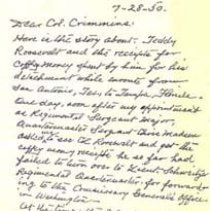 7-28-50.
Dear Col. Crimmins:
Here is the story about Teddy
Roosevelt and the receipts for
Coffee Money spent by him for his
detachment while enroute from
San Antonio, Tex, to Tampa, Florida.
One day, soon after my appointment
as Regimental Sergeant Major,
Quartermaster Sergeant Chris Madsen
asked to see Col Roosevelt and get the
coffee money receipt he so far had
failed to turn over to Lieut Schweizer
Regimental Quartermaster, for forward-
ing to the Commissary Generals Office
in Washington
At the time